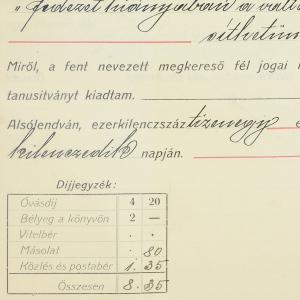 „fedezet hiányában a vált
síthetüm
Miről, a fent nevezett megkereső fél jogai
tanusitványt kiadtam.
Alsólendván, ezerkilenczszáz tizenegy
kilenczedik napján.
Díjjegyzék:
Óvásdíj 4 20
Bélyeg a könyvön 2 —
Vitelbér . .
Másolat . 80
Közlés és postabér 1. 35
Összesen 8. 35